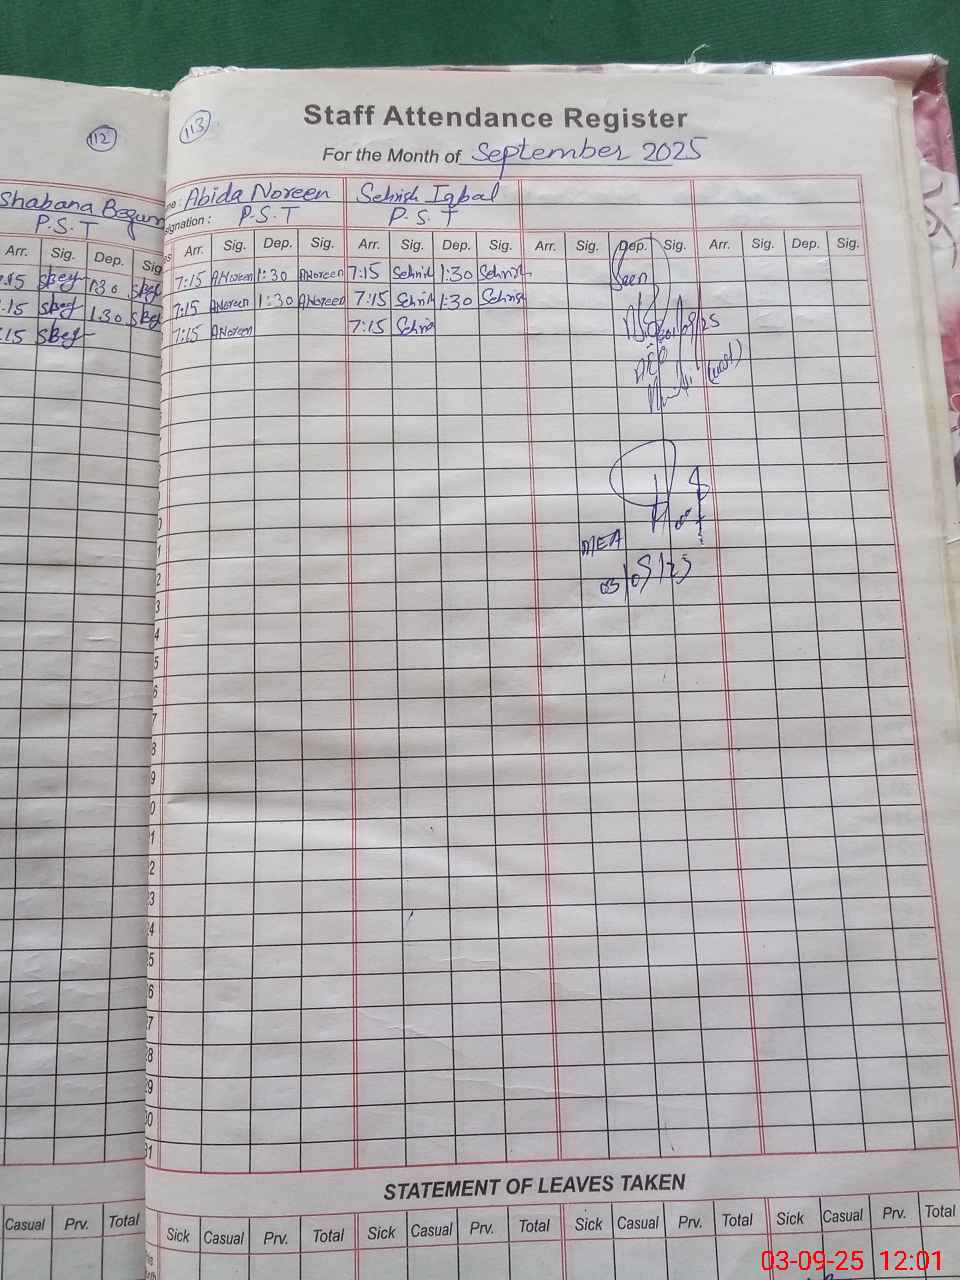 112
Shabana Begum
P.S.T
Arr. Sig. Dep. Sig
:15 sbeg 1:30 sbeg
:15 sbeg 1:30 sbeg
:15 sbeg
Casual Prv. Total
113
Staff Attendance Register
For the Month of September 2025
Abida Noreen Sehrish Iqbal
signation : P.S.T P.S.T
Arr. Sig. Dep. Sig. Arr. Sig. Dep. Sig. Arr. Sig. Dep. Sig. Arr. Sig. Dep. Sig.
7:15 ANoreen 1:30 ANoreen 7:15 Sehrish 1:30 Sehrish
7:15 ANoreen 1:30 ANoreen 7:15 Sehrish 1:30 Sehrish
7:15 ANoreen 7:15 Sehrish
Seen
MEA
03/09/25
STATEMENT OF LEAVES TAKEN
Sick Casual Prv. Total Sick Casual Prv. Total Sick Casual Prv. Total Sick Casual Prv. Total
03-09-25 12:01